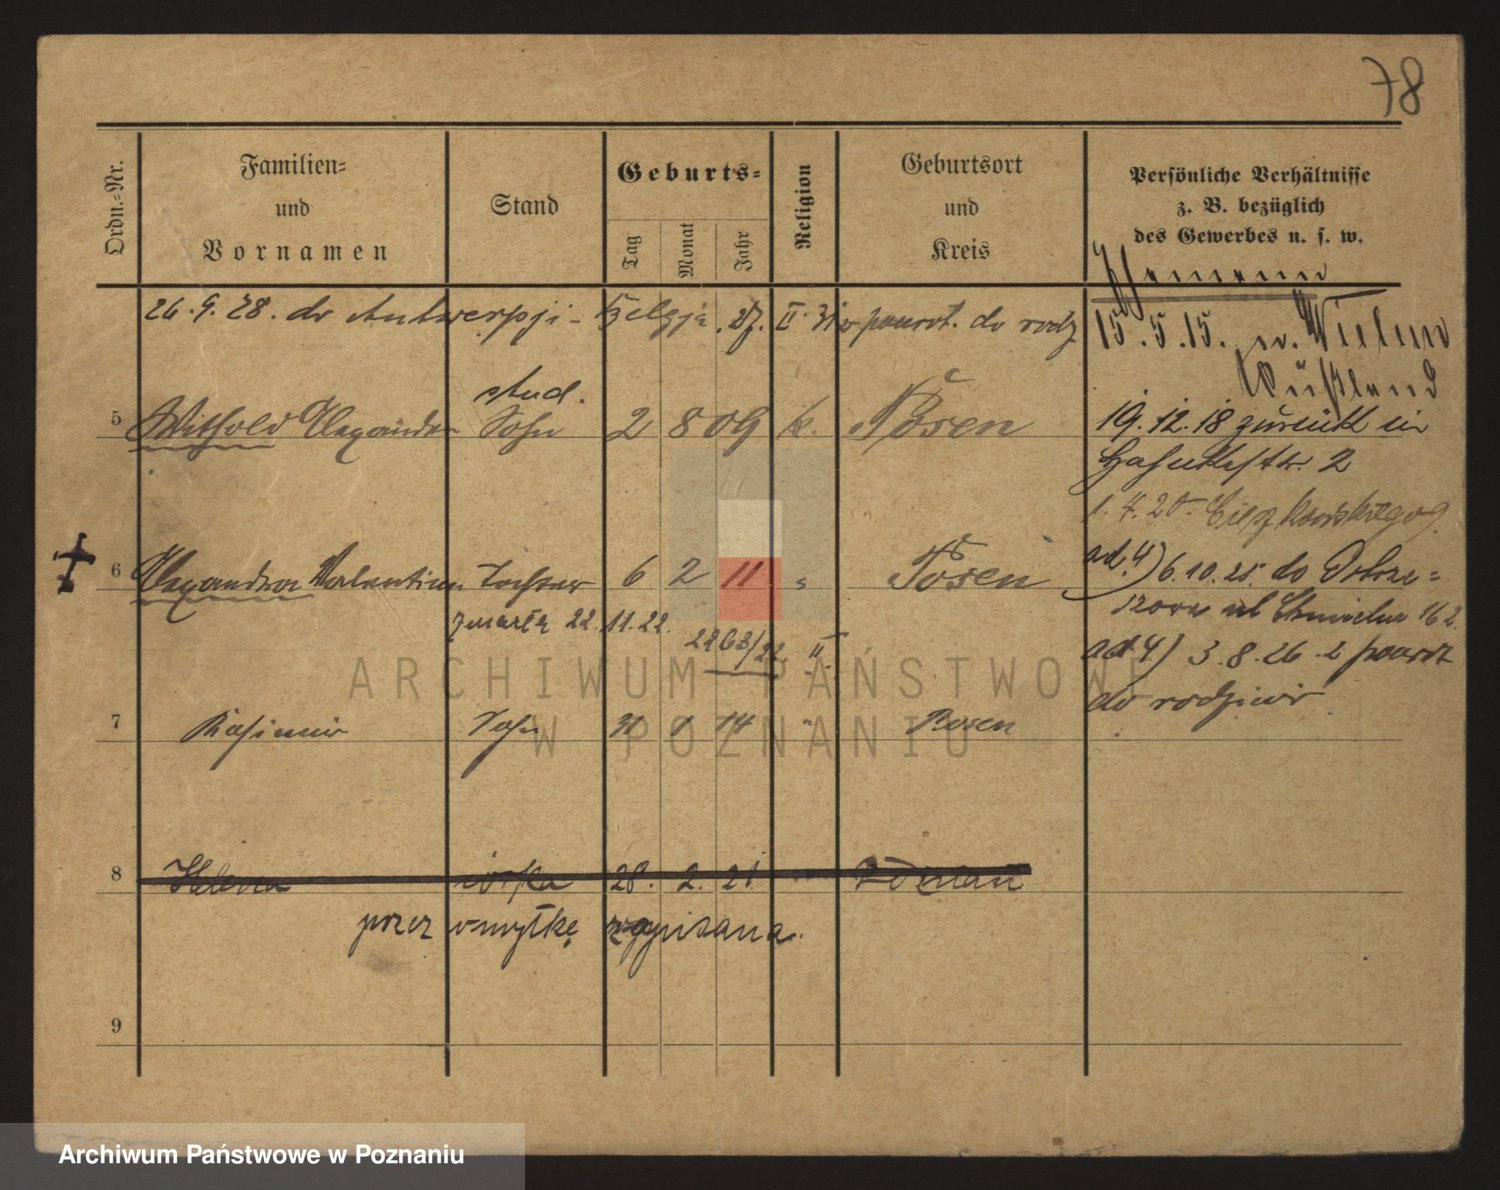 78
Ordn.-Nr.
Familien-
und
Vornamen
Stand
Geburts-
Tag
Monat
Jahr
Religion
Geburtsort
und
Kreis
Persönliche Verhältnisse
z. B. bezüglich
des Gewerbes u. s. w.
26.9.28. do Antwerpji - Belgja. 27. II 31 z powrot. do rodz
15.5.15.
Rußland
stud.
5 Withold Alexander Sohn 2 8 09 k. Posen
19.12.18 zurück in
2
1.4.20.
6 Alexandra Valentina Tochter 6 2 11 " Posen
ad.4) 6.10.25. do Dobrze=
162.
zmarła 22.11.22.
2263/22 II
ad 4) 3.8.26. z powrot
do rodziców
7 Kasimir Sohn 31 1 14 " Posen
8 Helena córka 28. 2. 21. " Poznań
przez omyłkę zapisana.
9
ARCHIWUM PAŃSTWOWE
W POZNANIU
Archiwum Państwowe w Poznaniu